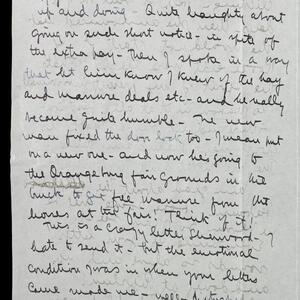 up and doing - Quite haughty about
going on such short notice - in spite of
the extra pay - Then I spoke in a way
that let him know I knew of the hay
and manure deals etc - and he really
became quite humble - The new
man fixed the door lock too - I mean put
on a new one - and now he's going to
the Orangeburg fair grounds in the
truck to get free manure from the
horses at the fair! Think of it!
This is a crazy letter Sherwood - I
hate to send it - but the emotional
condition I was in when your letters
came made me - well -